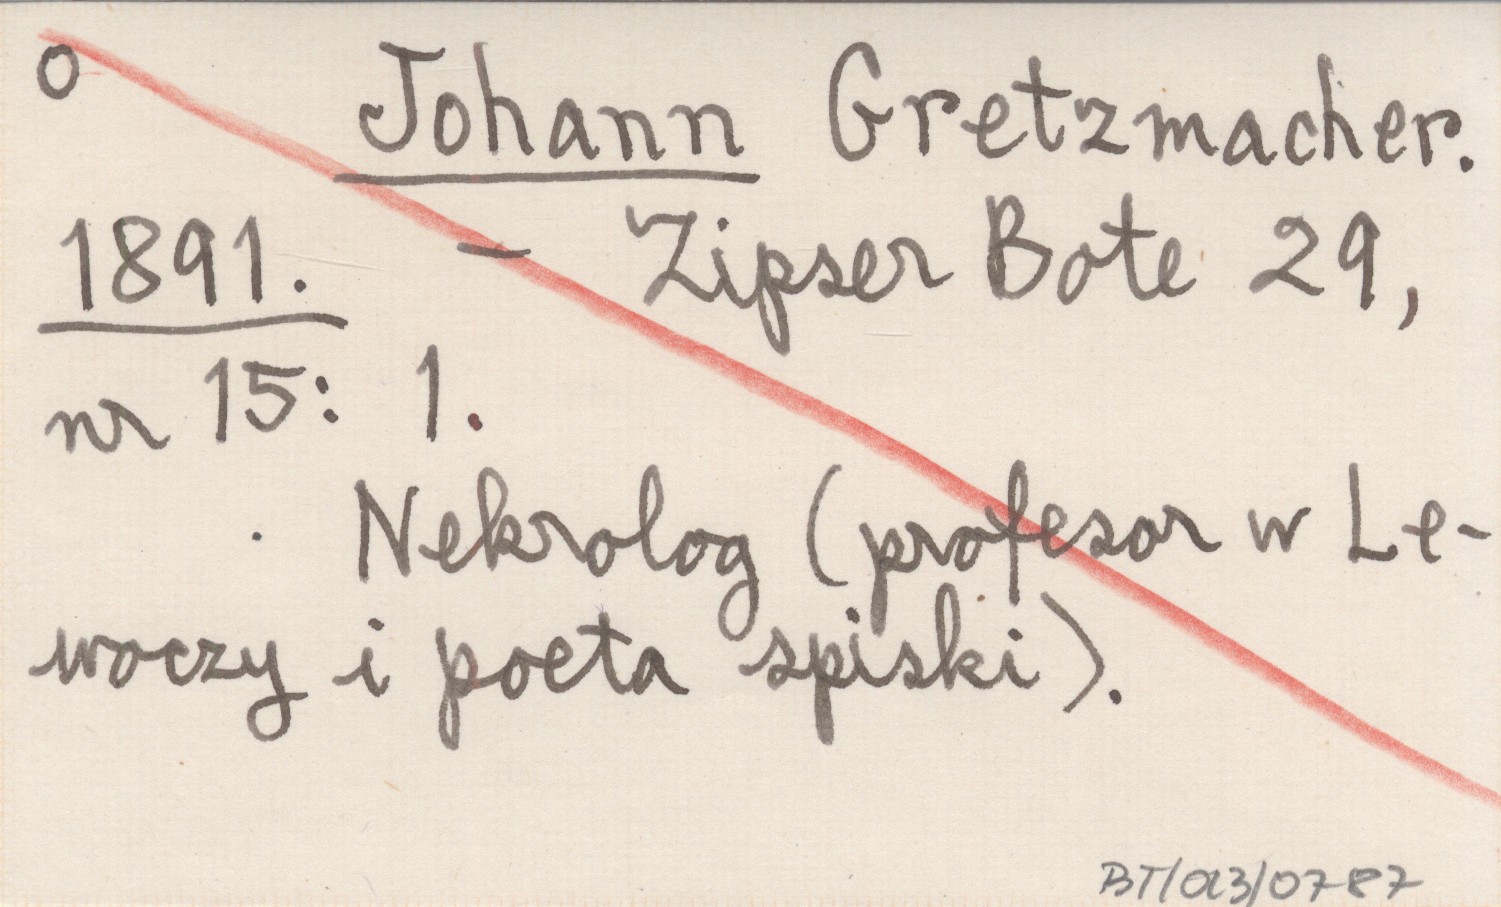 o Johann Gretzmacher.
1891. — Zipser Bote 29,
nr 15: 1.
Nekrolog (profesor w Le-
woczy i poeta spiski).
BT/013/0787